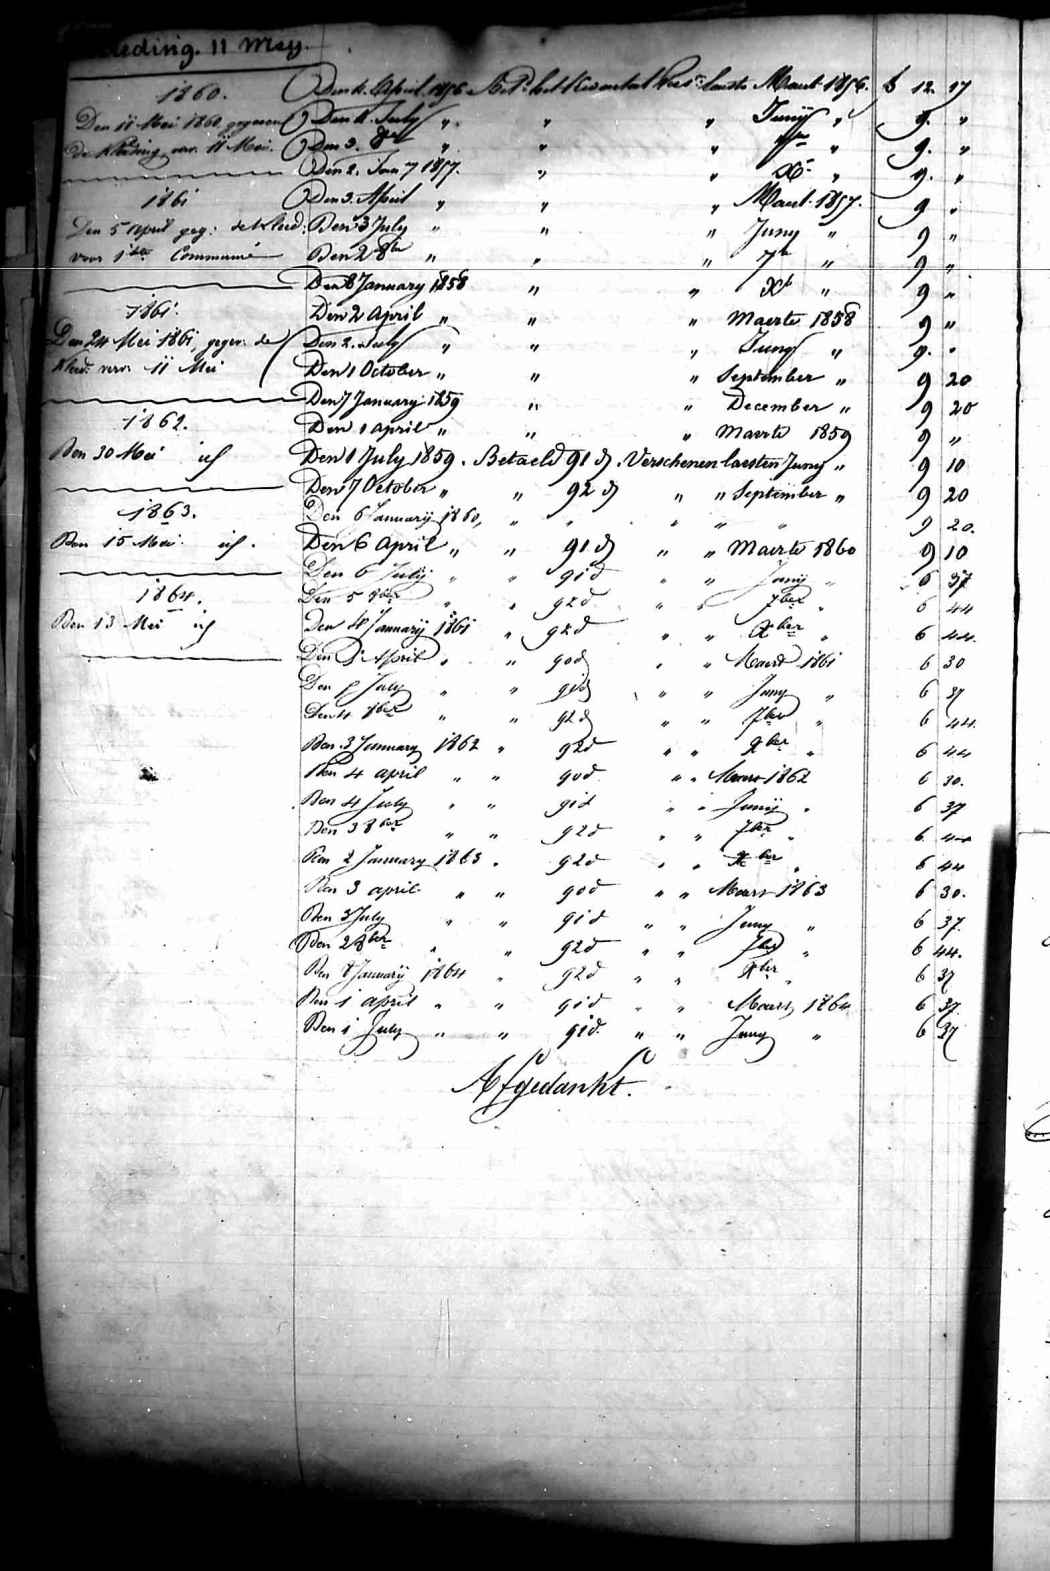 leding. 11 Mey.
1860.
Den 11 Mei 1860 gegeven
de Kleeding verv. 11 Mei.
1861
Den 5 april geg: de kleed:
voor 1ste Communie
1861.
Den 24 Mei 1861, gegev: de
Kleed: verv. 11 Mei
1862.
Den 30 Mei id
1863.
Den 15 Mei id.
1864.
Den 13 Mei id
Den 4 April 1856 het Kwartal laeste Maart 1856. 12 17
Den 4 July " " " Junij " 9. "
Den 3. 8br " " " 7br " 9. "
Den 2. Jan 7 1857. " " Xbr " 9. "
Den 3. April " " " Maert 1857. 9 "
Den 3 July " " " Juny " 9 "
Den 2 8br " " " 7br " 9 "
Den 8 January 1858 " " Xbr " 9 "
Den 2 April " " " Maerte 1858 9 "
Den 2. July " " " Juny " 9. "
Den 1 October " " " September " 9 20
Den 7 January 1859 " " December " 9 20
Den 1 april " " " Maerte 1859 9 "
Den 1 July 1859. Betaeld 91 d. Verschenen laesten Juny " 9 10
Den 7 October " " 92 d " " September " 9 20
Den 6 Januarij 1860, " " " " " 9 20.
Den 6 April " " 91 d " " Maerte 1860 9 10
Den 6 Julij " " 91 d " " Junij " 6 37
Den 5 8ber " " 92 d " " 7ber " 6 44
Den 4 Januarij 1861 " 92 d " " Xber " 6 44.
Den April " " 90 d " " Maert 1861 6 30
Den July " " 91 d " " Juny " 6 37
Den 4 8ber " " 92 d " " 7ber " 6 44.
Den 3 January 1862 " 92 d " " Xber " 6 44
Den 4 april " " 90 d " " Maert 1862 6 30.
Den 4 July " " 91 d " " Junij " 6 37
Den 3 8ber " " 92 d " " 7ber " 6 44
Den 2 January 1863 " 92 d " " Xber " 6 44
Den 3 april " " 90 d " " Maert 1863 6 30.
Den 3 July " " 91 d " " Juny " 6 37.
Den 2 8ber " " 92 d " " 7ber " 6 44.
Den 8 Januarij 1864 " 92 d " " Xber " 6 37
Den 1 april " " 91 d " " Maert 1864 6 37.
Den 1 July " " 91 d. " " Juny " 6 37
Afgedankt.